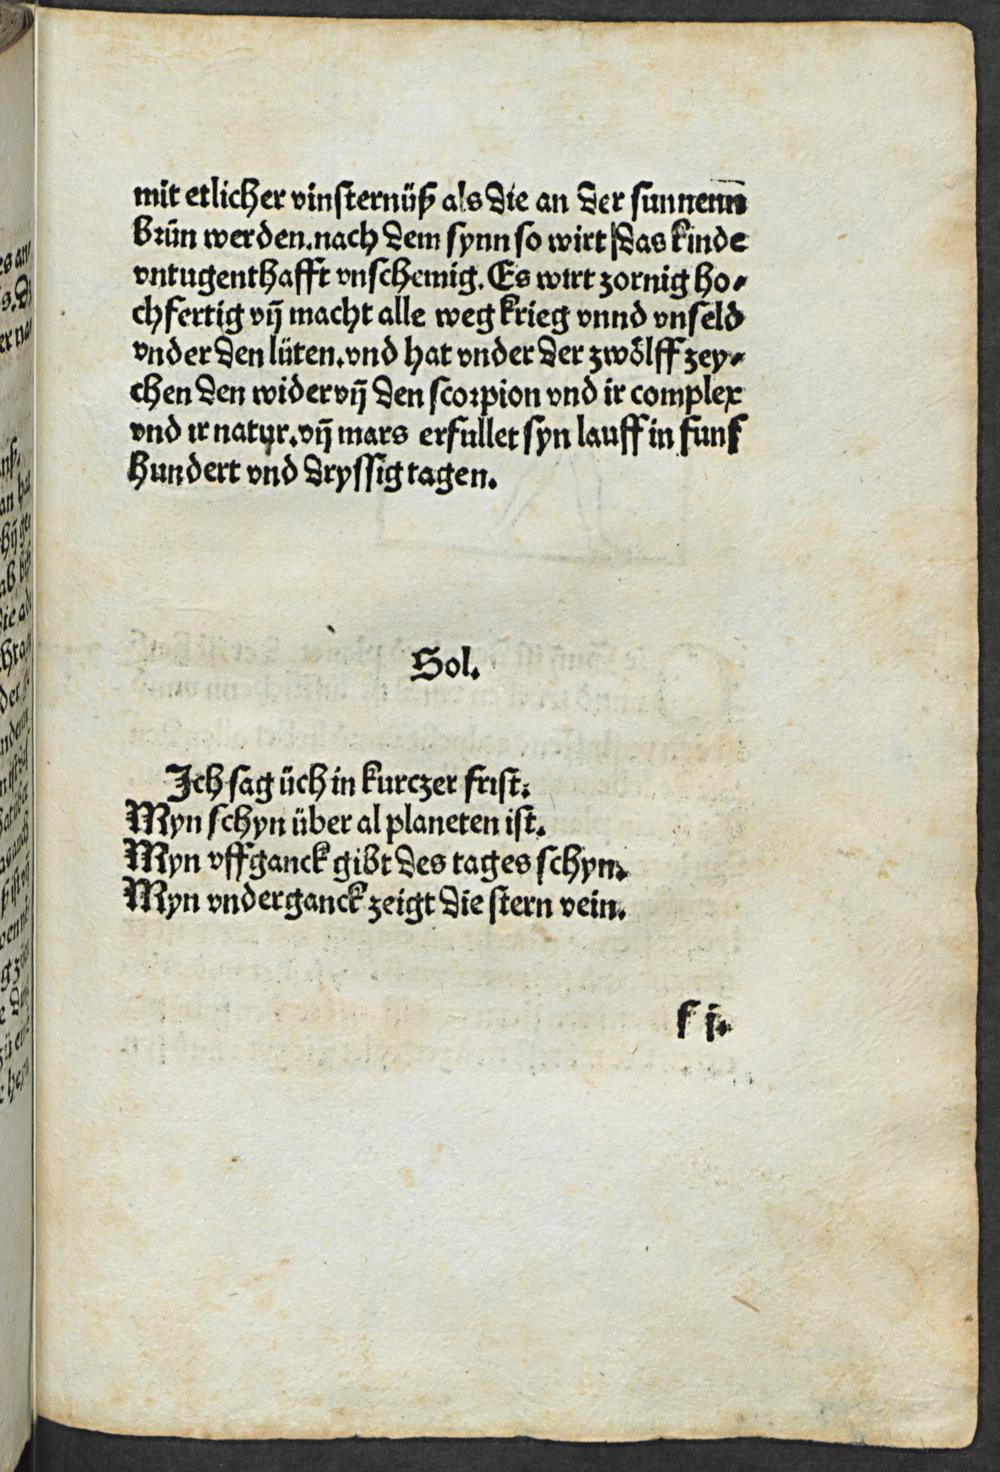 mit etlicher vinsternüß als die an der sunnenn
brün werden. nach dem synn so wirt das kinde
vntugenthafft vnschemig. Es wirt zornig ho⸗
chfertig vn̄ macht alle weg krieg vnnd vnseld
vnder den lüten. vnd hat vnder der zwölff zey⸗
chen den wider vn̄ den scorpion vnd ir complex
vnd ir natur. vn̄ mars erfullet syn lauff in funf
hundert vnd dryssig tagen.
Sol.
Ich sag üch in kurczer frist.
Myn schyn über al planeten ist.
Myn vffganck gibt des tages schyn.
Myn vnderganck zeigt die stern vein.
f j.